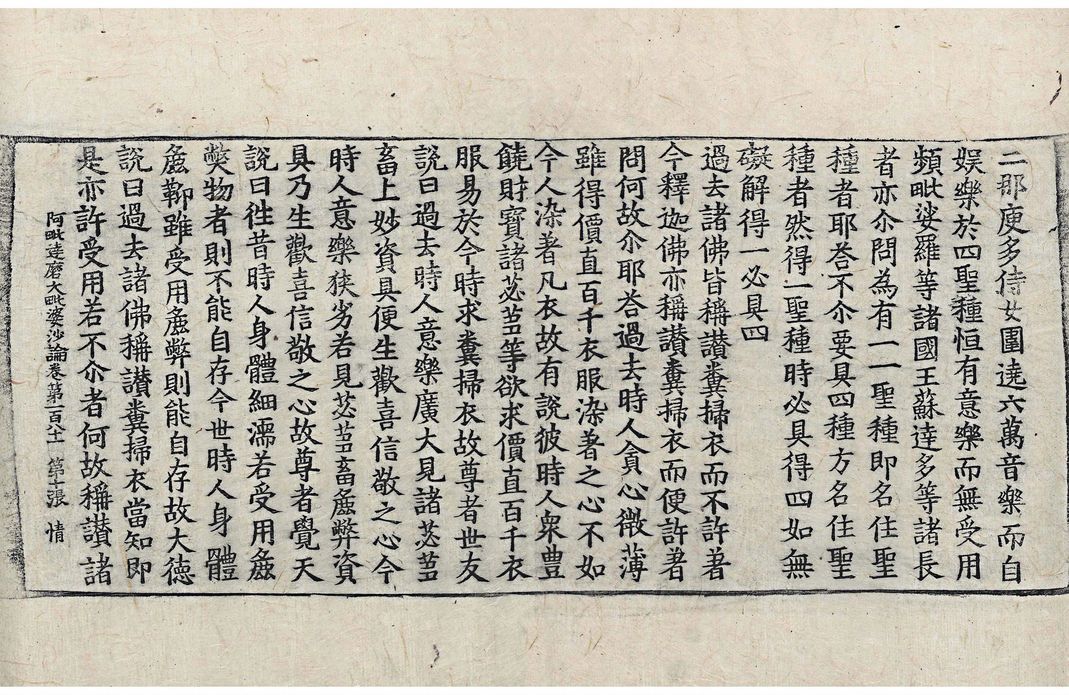 二那庾多侍女圍遶六萬音樂而自
娛樂於四聖種恒有意樂而無受用
頻毗娑羅等諸國王蘇達多等諸長
者亦尒問為有一一聖種即名住聖
種者耶荅不尒要具四種方名住聖
種者然得一聖種時必具得四如無
礙解得一必具四
過去諸佛皆稱讃糞掃衣而不許著
今釋迦佛亦稱讃糞掃衣而便許著
問何故尒耶荅過去時人貪心微薄
雖得價直百千衣服染著之心不如
今人染著凡衣故有說彼時人衆豊
饒財寶諸苾芻等欲求價直百千衣
服易於今時求糞掃衣故尊者世友
說曰過去時人意樂廣大見諸苾芻
畜上妙資具便生歡喜信敬之心今
時人意樂狹劣若見苾芻畜麁弊資
具乃生歡喜信敬之心故尊者覺天
說曰徃昔時人身體細濡若受用麁
獘物者則不能自存今世時人身體
麁鞕雖受用麁弊則能自存故大德
說曰過去諸佛稱讃糞掃衣當知即
是亦許受用若不尒者何故稱讃諸
阿毗達磨大毗婆沙論卷第一百八十一 第十張 情